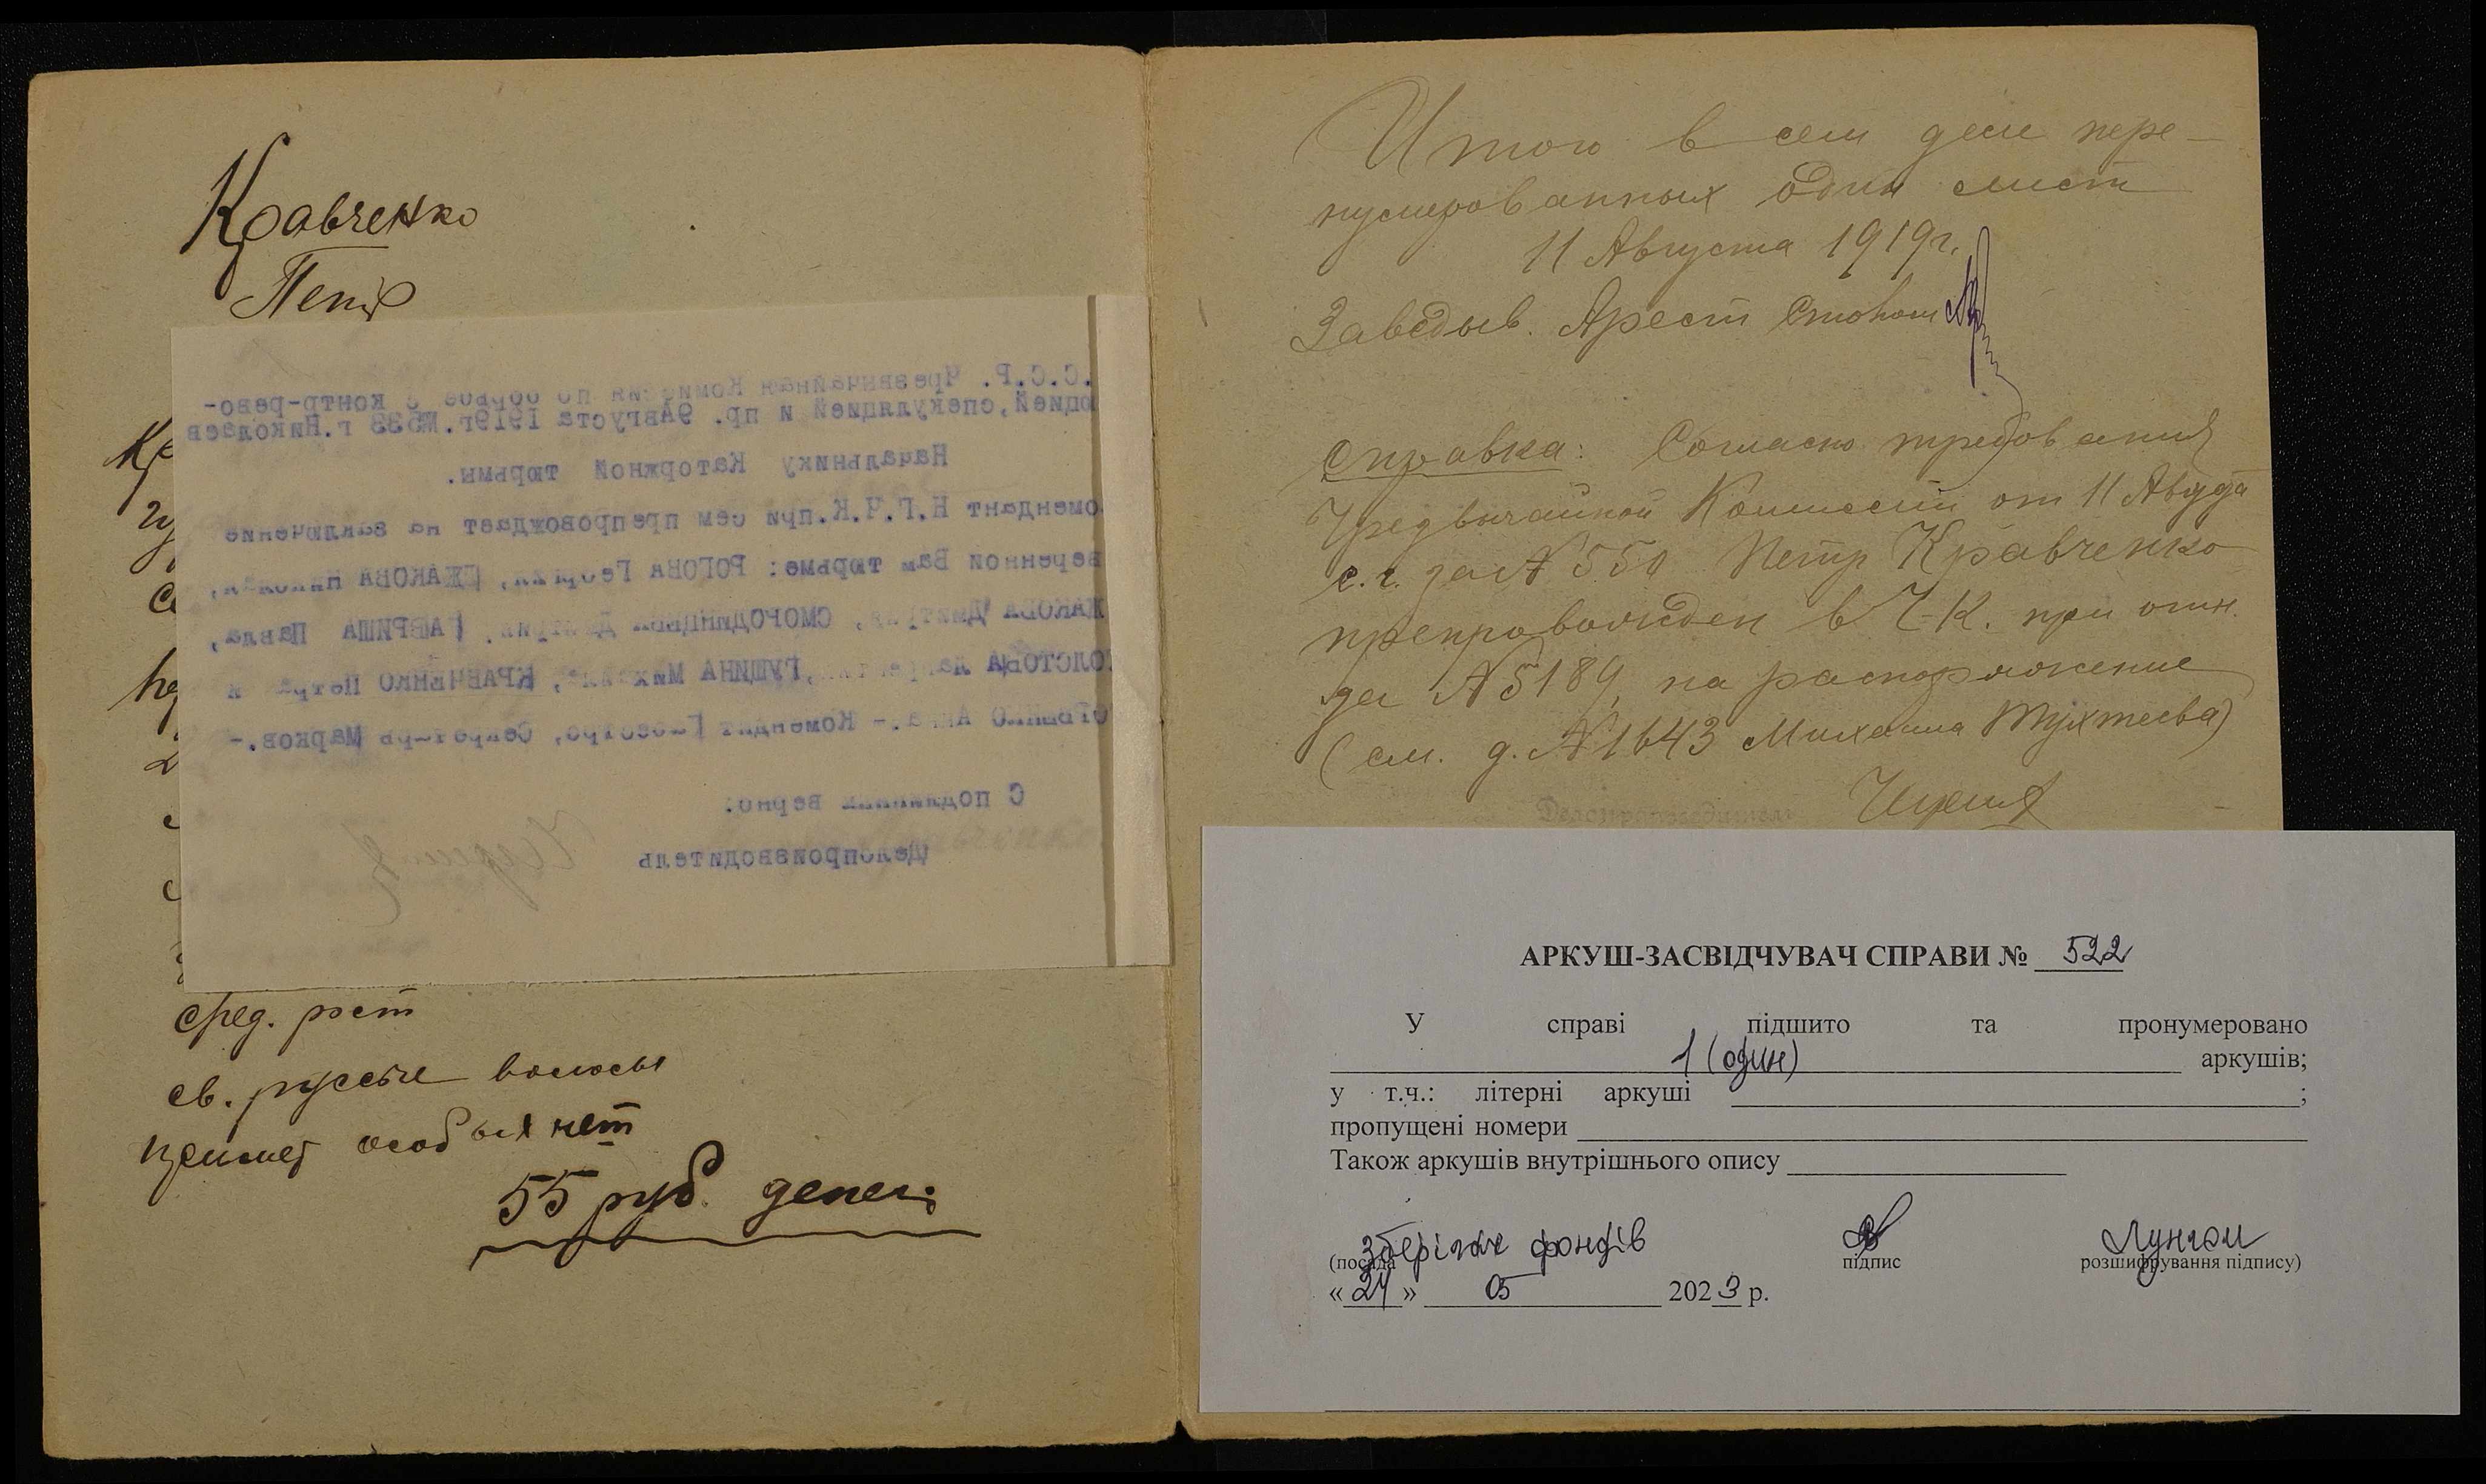 Кравченко
Петр
.С.С.Р. Чрезвычайная Комиссия по борьбе с контр-рево-
юцией,спекуляцией и пр. 9Августа 1919г.№533 г.Николаев
Начальнику Каторжной тюрьмы.
омендант Н.Г.Ч.К.при сем препровождает на заключение
веренной Вам тюрьме: РОГОВА Георгия, ДЖАКОВА Николая,
ЖАКОВА Дмитрия, СМОРОДИНЦЫН Дмитрия, ГАВРИША Павла,
ОЛСТОВЦА ГУЩИНА Михаила, КРАВЧЕНКО Петра и
Анна.- Комендант Секретарь Марков.-
С подлинным верно:
Делопроизводитель
сред. рост
св. русые волосы
примет особых нет
55 руб. денег.
Итого в сем деле пере-
нумерованных один лист
11 Августа 1919г.
Заведыв. Арест Столом
Справка: Согласно требования
Чрезвычайной Комиссии от 11 Августа
с.г. за № 550 Петр Кравченко
препровожден в Ч.К. при отн.
за № 5189 на распоряжение
(см. д. № 1643 Михаила Тухтеева)
Делопроизводитель
АРКУШ-ЗАСВІДЧУВАЧ СПРАВИ № 522
У справі підшито та пронумеровано
1 (один) аркушів;
у т.ч.: літерні аркуші ;
пропущені номери
Також аркушів внутрішнього опису
зберігач фондів
(посада підпис розшифрування підпису)
«24» 05 2023 р.